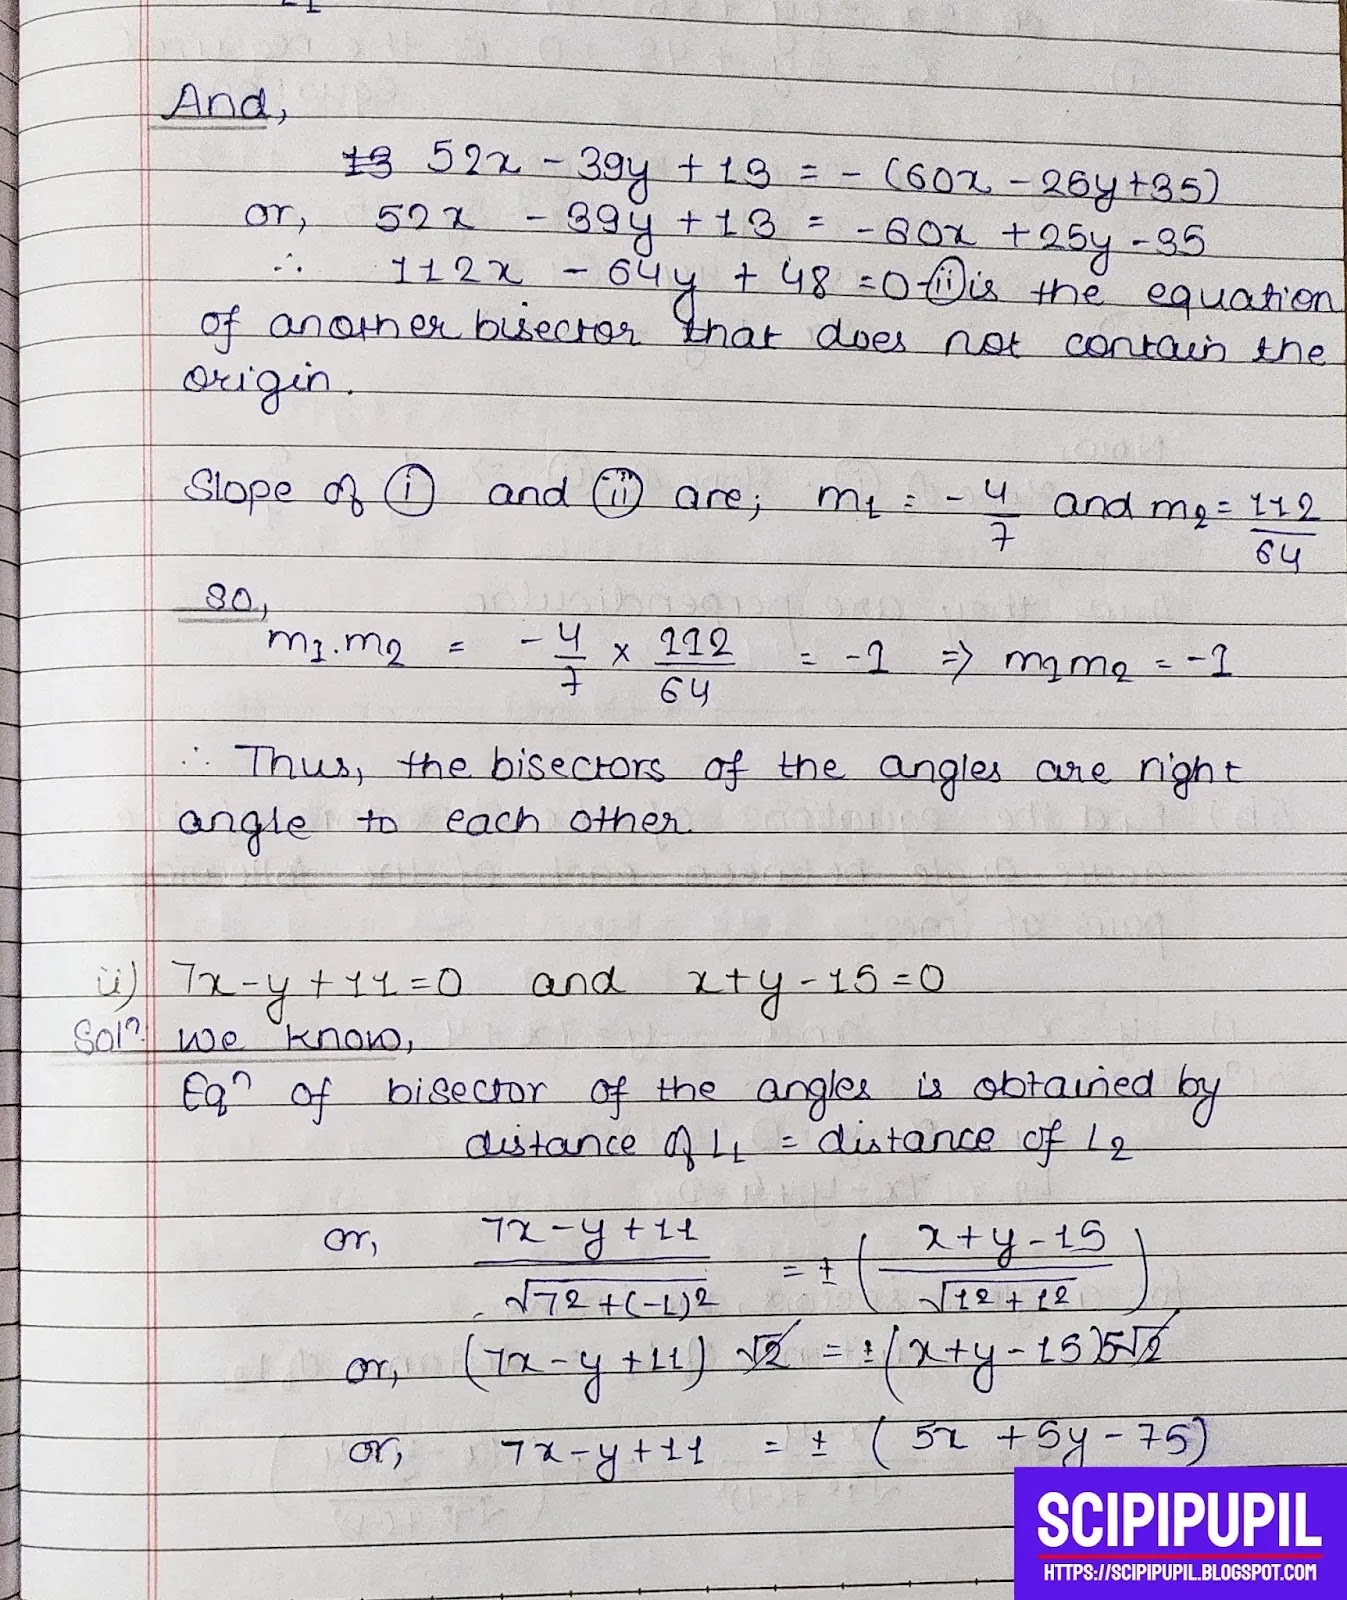 And,
52x - 39y + 13 = - (60x - 25y + 35)
or, 52x - 39y + 13 = -60x + 25y - 35
∴ 112x - 64y + 48 = 0 - (ii) is the equation
of another bisector that does not contain the
origin.
Slope of (i) and (ii) are; m₁ = -4/7 and m₂ = 112/64
So,
m₁.m₂ = -4/7 × 112/64 = -1 ⇒ m₁m₂ = -1
∴ Thus, the bisectors of the angles are right
angle to each other.
ii) 7x - y + 11 = 0 and x + y - 15 = 0
Solⁿ. We know,
Eqⁿ of bisector of the angles is obtained by
distance of L₁ = distance of L₂
or, (7x - y + 11)/√(7² + (-1)²) = ± ((x + y - 15)/√(1² + 1²))
or, (7x - y + 11) √2 = ± (x + y - 15) 5√2
or, 7x - y + 11 = ± (5x + 5y - 75)
SCIPIPUPIL
HTTPS://SCIPIPUPIL.BLOGSPOT.COM